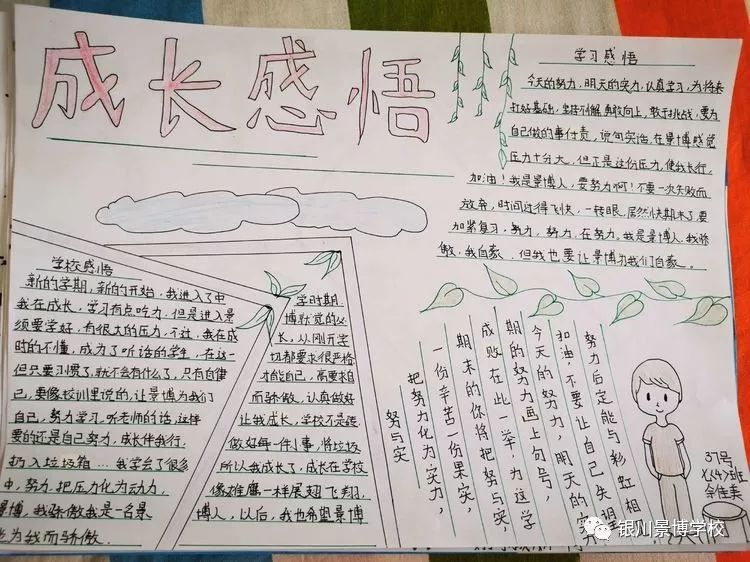 成长感悟
学习感悟
今天的努力,明天的实力,认真学习,为将来
打好基础,坚持不懈,勇敢向上,敢于挑战,要为
自己做的事付责,说句实话,在景博感觉
压力十分大,但正是这份压力,使我长行,
加油!我是景博人,要努力啊!不要一次失败而
放弃,时间过得飞快,一转眼,居然快期末了,要
加紧复习,努力,努力,在努力,我是景博人,我骄
傲,我自豪,但我也要让景博为我们自豪。
学校感悟
新的学期,新的开始,我进入了中
我在成长,学习有点吃力,但是进入景
须要学好,有很大的压力,不过,我在成
时的不懂,成为了听话的学生,在这一
但只要习惯了,就不会有什么了,只有自律
己,要像校训里说的,让景博为我们
自己,努力学习,听老师的话,这样
要的还是自己努力,成长伴我行,
扔入垃圾箱…我学会了很多
中,努力,把压力化为动力,
景博,我骄傲我是一名景
也为我而骄傲.
学时期
长,从刚开学
切都要求很严格
才能自己,高要求自
而骄傲,认真做好
让我成长,学校不是
做好每一件小事,将垃圾
所以我成长了,成长在学校
像雄鹰一样展翅飞翔,
博人,以后,我也希望景博
努力后定能与彩虹相
加油,不要让自己失望
今天的努力,明天的实
期的努力画上句号,
成败在此一举,为这学
期末的你将把努与实,
一份辛苦一份果实,
把努力化为实力,
努与实
37号
七(4)班
银川景博学校